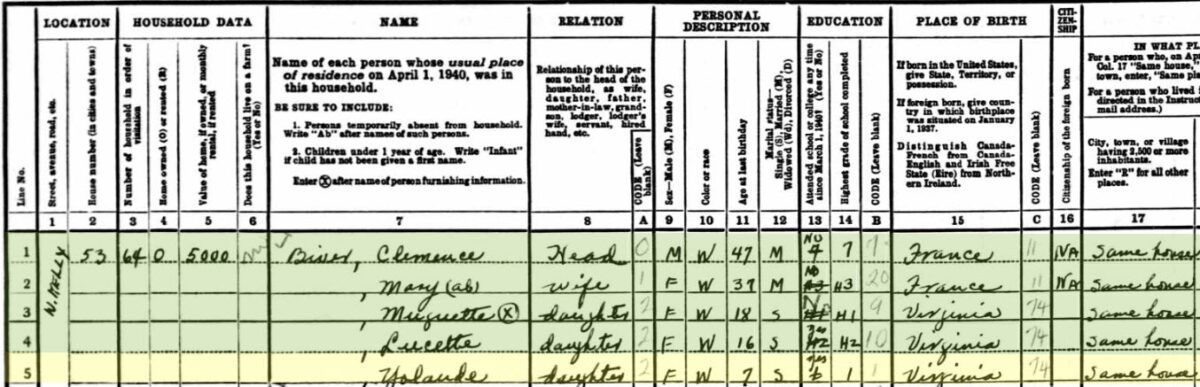 LOCATION HOUSEHOLD DATA NAME RELATION PERSONAL DESCRIPTION EDUCATION PLACE OF BIRTH CITI-ZENSHIP
Line No.
Street, avenue, road, etc.
House number (in cities and towns)
Number of household in order of visitation
Home owned (O) or rented (R)
Value of home, if owned, or monthly rental, if rented
Does this household live on a farm? (Yes or No)
Name of each person whose usual place
of residence on April 1, 1940, was in
this household.
BE SURE TO INCLUDE:
1. Persons temporarily absent from household.
Write "Ab" after names of such persons.
2. Children under 1 year of age. Write "Infant"
if child has not been given a first name.
Enter Ⓧ after name of person furnishing information.
Relationship of this per-
son to the head of the
household, as wife,
daughter, father,
mother-in-law, grand-
son, lodger, lodger's
wife, servant, hired
hand, etc.
CODE (Leave blank)
Sex—Male (M), Female (F)
Color or race
Age at last birthday
Marital status—
Single (S), Married (M),
Widowed (Wd), Divorced (D)
Attended school or college any time
since March 1, 1940? (Yes or No)
Highest grade of school completed
CODE (Leave blank)
If born in the United States,
give State, Territory, or
possession.
If foreign born, give coun-
try in which birthplace
was situated on January
1, 1937.
Distinguish Canada-
French from Canada-
English and Irish Free
State (Eire) from North-
ern Ireland.
CODE (Leave blank)
Citizenship of the foreign born
IN WHAT PL
For a person who, on Ap
Col. 17 "Same house,"
town, enter, "Same pl
For a person who lived
directed in the Instruc
mail address.)
City, town, or village
having 2,500 or more
inhabitants.
Enter "R" for all other
places.
1 2 3 4 5 6 7 8 A 9 10 11 12 13 14 B 15 C 16 17
N. Kelly
1 53 64 O 5000 Biver, Clemence Head 0 M W 47 M No 7 7 France 11 NA Same house
2 , Mary (ab) wife 1 F W 37 M No H3 20 France 11 NA Same house
3 , Muguette Ⓧ daughter 2 F W 18 S No H1 9 Virginia 74 Same house
4 , Lucette daughter 2 F W 16 S yes H2 10 Virginia 74 Same house
5 , Yolande daughter 2 F W 7 S yes 1 1 Virginia 74 Same house